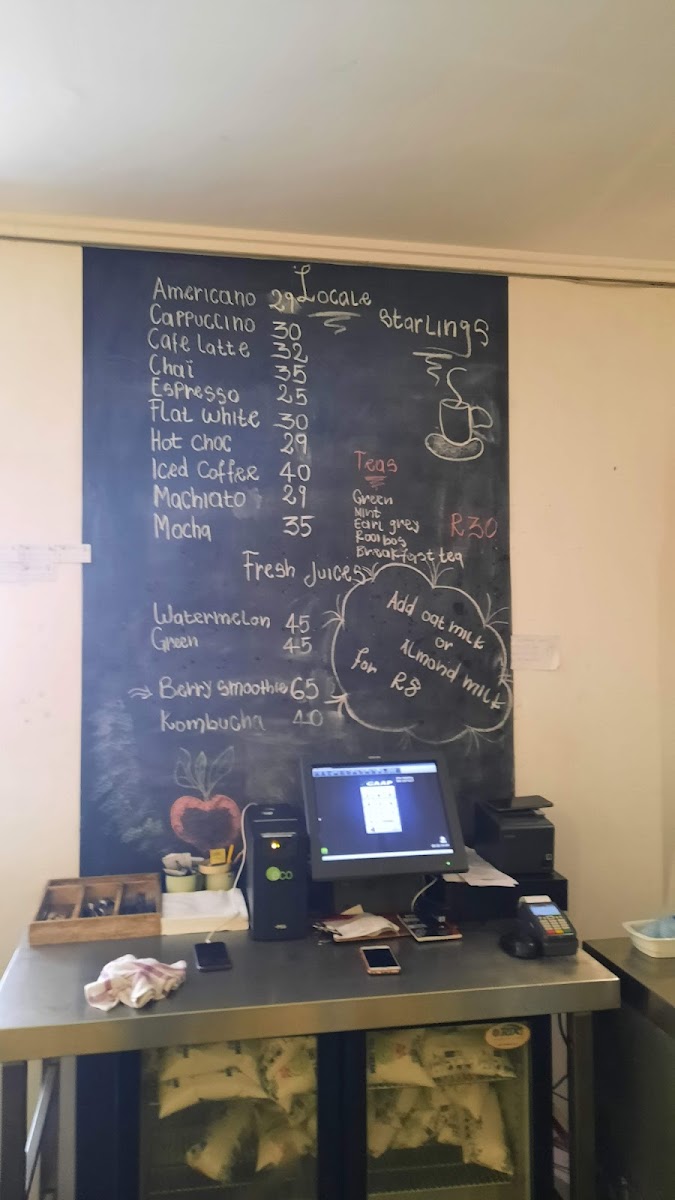 Locale
Starlings
Americano 29
Cappuccino 30
Cafe Latte 32
Chai 35
Espresso 25
Flat white 30
Hot choc 29
Iced Coffee 40
Machiato 29
Mocha 35
Teas
Green
Mint
Earl grey
Rooibos
Breakfast tea
R30
Fresh Juices
Watermelon 45
Green 45
Berry smoothie 65
Kombucha 40
Add oat milk
or
Almond milk
for R8
GAAP
eco